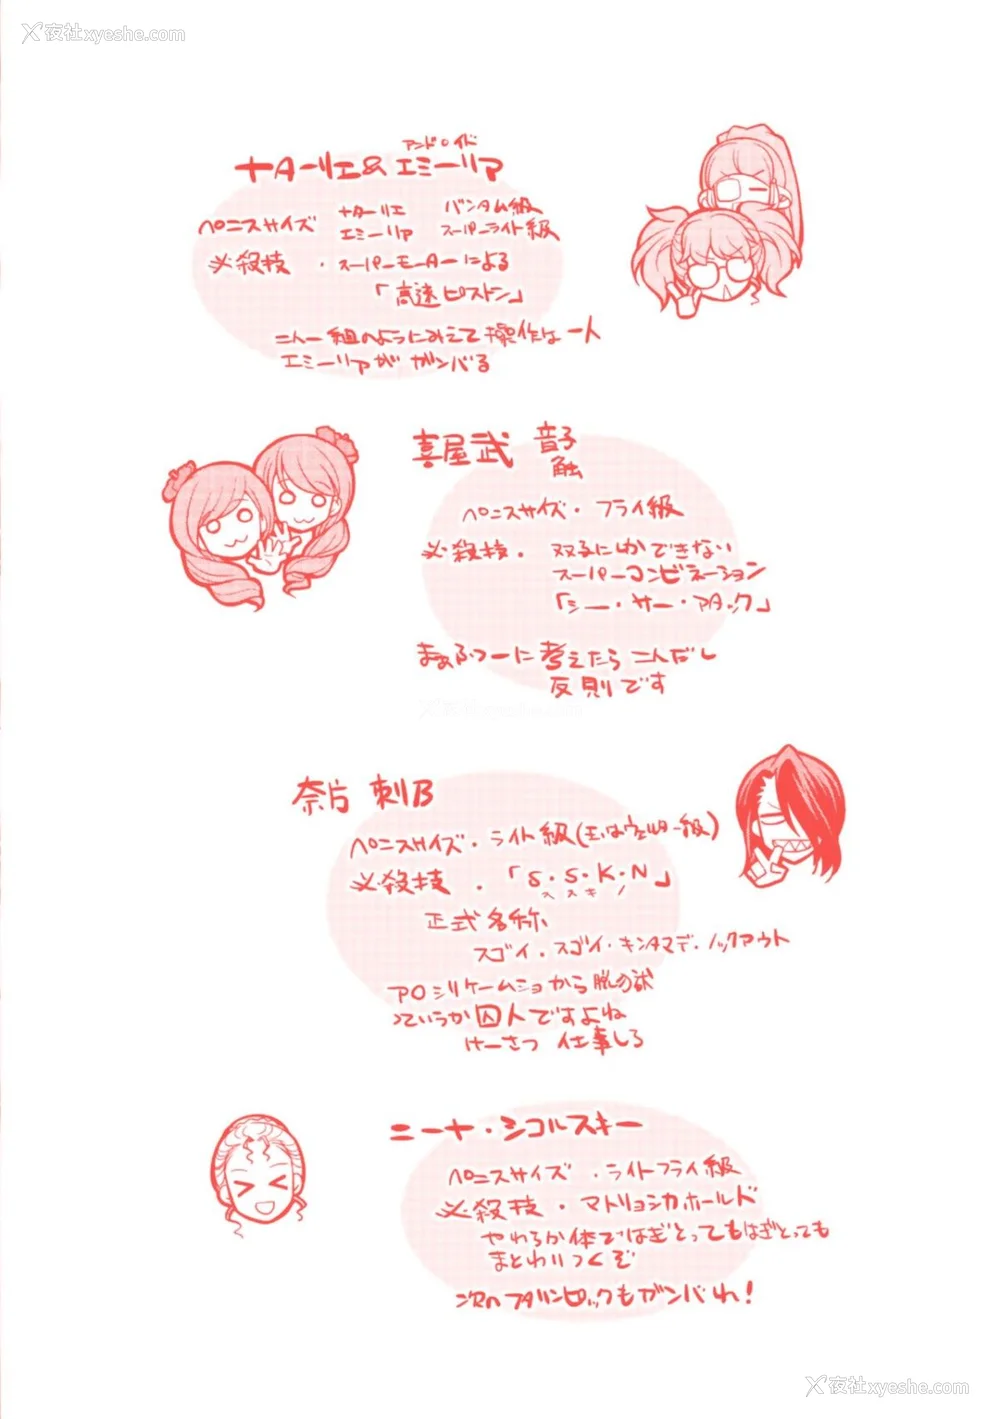 夜社xyeshe.com
アンドロイド
ナターリエ&エミーリア
ペニスサイズ ナターリエ バンタム級
エミーリア スーパーライト級
必殺技・スーパーモーターによる
「高速ピストン」
二人一組のようにみえて操作は一人
エミーリアがガンバる
喜屋武 音子
触
ペニスサイズ・フライ級
必殺技・双子にしかできない
スーパーコンビネーション
「シー・サー・アタック」
まぁふつーに考えたら二人だし
反則です
奈片 刺B
ペニスサイズ・ライト級(玉はウェルター級)
必殺技・「S・S・K・N」
ス ス キ ノ
正式名称
スゴイ・スゴイ・キンタマデ・ノックアウト
アロシリケームショから脱の獄
っていうか囚人ですよね
けーさつ 仕事しろ
ニーナ・シコルスキー
ペニスサイズ・ライトフライ級
必殺技・マトリョシカホールド
やわらか体ではぎとってもはぎとっても
まとわりつくぞ
次のフタリンピックもガンバれ!
夜社xyeshe.com